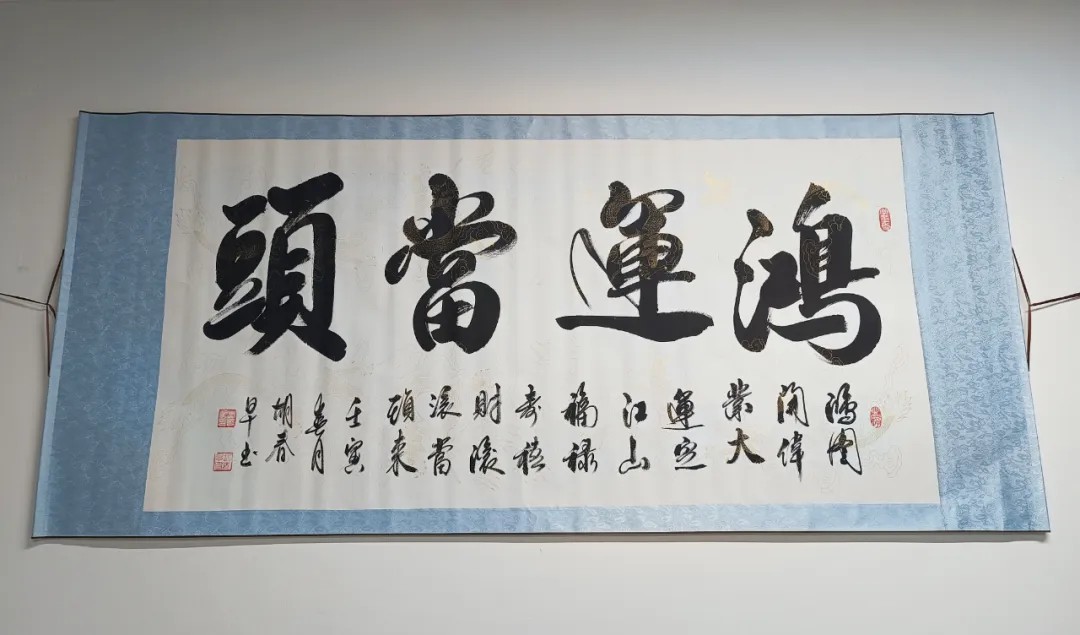 鴻運當頭
鴻图
開偉
業大
運定
江山
福禄
寿禧
財滚
滚當
頭来
壬寅
春月
胡春
早书